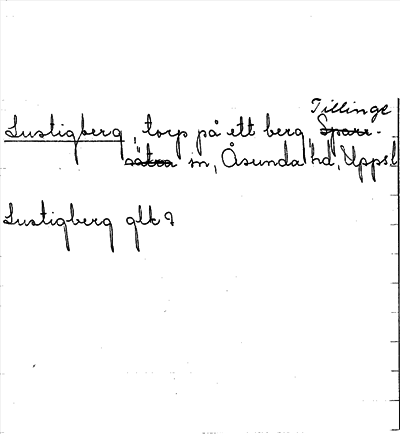 Tillinge
Lustigberg, torp på ett berg, Sparr-
sätra sn, Åsunda hd, Uppsl
Lustigberg glk?